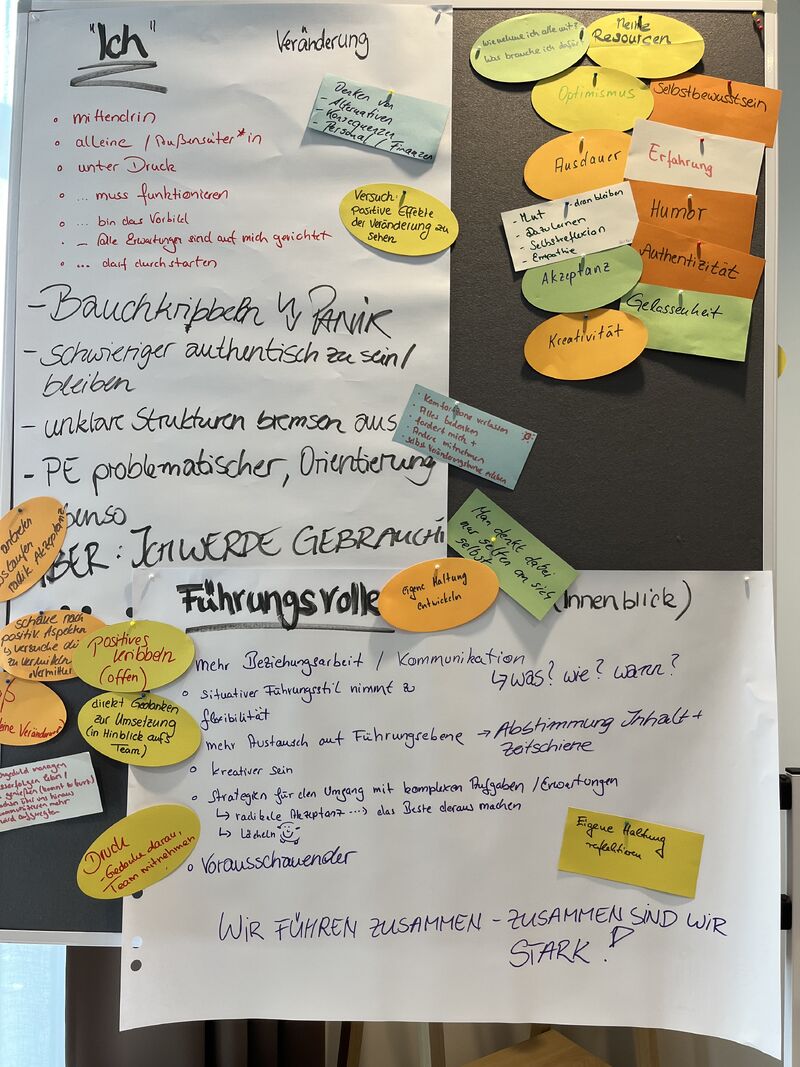 "Ich"
Veränderung
◦ mittendrin
◦ alleine / Außenseiter*in
◦ unter Druck
◦ ... muss funktionieren
◦ ... bin das Vorbild
◦ ... alle Erwartungen sind auf mich gerichtet
◦ ... darf durchstarten
- Bauchkribbeln ↯ PANIK
- schwieriger authentisch zu sein /
bleiben
- unklare Strukturen bremsen aus
- PE problematischer, Orientierung
ebenso
ABER: ICH WERDE GEBRAUCHT
Denken von
- Alternativen
- Konsequenzen
- Personal / Finanzen
Versuch:
positive Effekte
der Veränderung zu
sehen
Wie nehme ich alle mit?
Was brauche ich dafür?
Meine
Resourcen
Optimismus
Selbstbewusstsein
Ausdauer
Erfahrung
- Mut - dran bleiben
- Dazulernen
- Selbstreflexion
- Empathie
Humor
Akzeptanz
Authentizität
Gelassenheit
Kreativität
• Komfortzone verlassen
• Alles bedenken
• fordert mich +
• Andere mitnehmen
• selbst Veränderungskurve erleben
Man denkt dabei
nur selten an sich
selbst
eigene Haltung
entwickeln
Führungsrolle
(Innenblick)
mehr Beziehungsarbeit / Kommunikation
↳ was? wie? wann?
◦ situativer Führungsstil nimmt zu
flexibilität
mehr Austausch auf Führungsebene → Abstimmung Inhalt +
Zeitschiene
◦ kreativer sein
◦ Strategien für den Umgang mit komplexen Aufgaben / Erwartungen
↳ radikale Akzeptanz ...> das Beste daraus machen
↳ Lächeln
◦ Vorausschauender
WIR FÜHREN ZUSAMMEN - ZUSAMMEN SIND WIR
STARK!
Eigene Haltung
reflektieren
radik. Akzeptanz
schaue nach
positiv. Aspekten
↳ versuche die
zu vermitteln
Positives
kribbeln
(offen)
direkt Gedanken
zur Umsetzung
(in Hinblick aufs
Team)
eine Veränderung)
managen
(kommt to burst)
kommunizieren mehr
Druck
- Gedanke daran,
Team mitnehmen